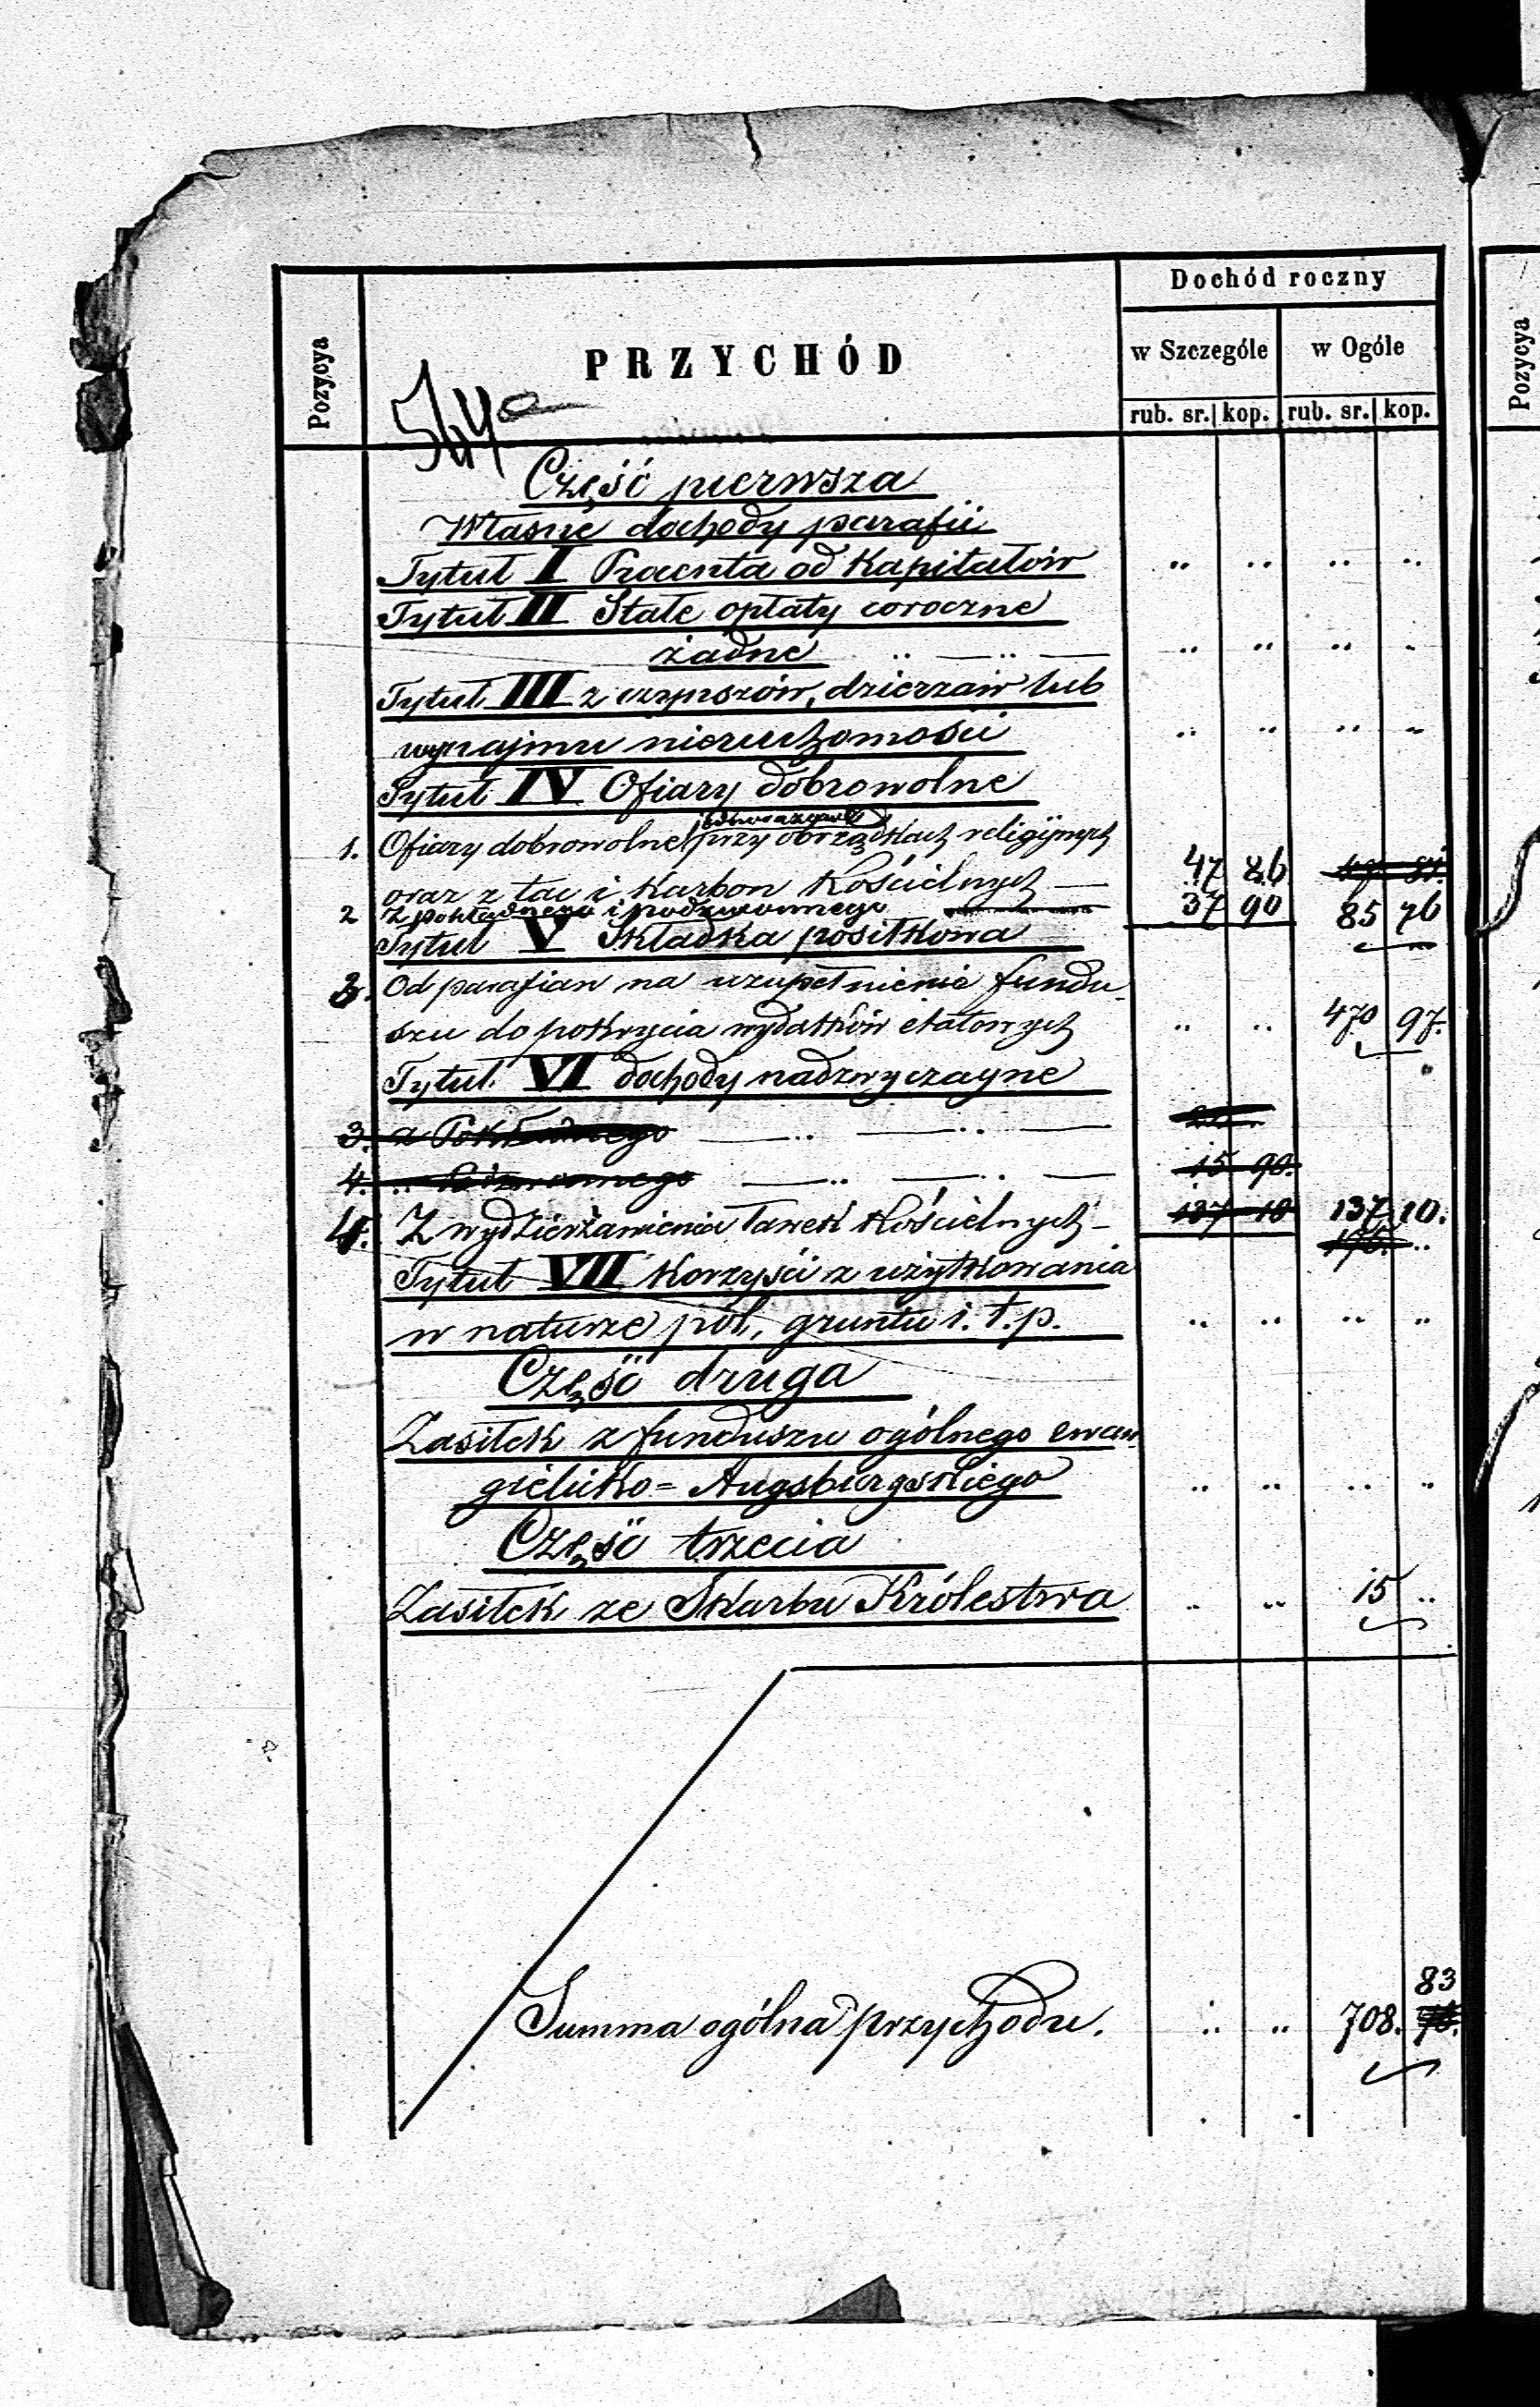 Dochód roczny
Pozycya
PRZYCHÓD
w Szczególe w Ogóle
rub. sr. kop. rub. sr. kop.
Część pierwsza
Własne dochody parafii
Tytuł I Procenta od Kapitałów " " " "
Tytuł II Stałe opłaty coroczne
żadne " — " — " " " "
Tytuł III z czynszów, dzierżaw lub
wynajmu nieruchomości " " " "
Tytuł IV Ofiary dobrowolne
1. Ofiary dobrowolne przy obrządkach religijnych
oraz z tac i Karbon Kościelnych — 47 86
2 Z pokładnego i podzwonnego 37 90 85 76
Tytuł V Składka posiłkowa
3. Od parafian na uzupełnienie fundu-
szu do pokrycia wydatków etatowych " " 470 97.
Tytuł VI dochody nadzwyczajne
3. z Pokładnego — " — " —
4. " Podzwonnego — " — " — 15 90.
4. Z wydzierżawienia ławek Kościelnych - 137 10 137 10.
Tytuł VII Korzyści z użytkowania
w naturze pól, gruntu i. t. p. " " " "
Część druga
Zasiłek z funduszu ogólnego ewan-
gielicko = Augsburgskiego " " " "
Część trzecia
Zasiłek ze Skarbu Królestwa " " 15 "
83
Summa ogólna przychodu. " " 708.
Pozycya